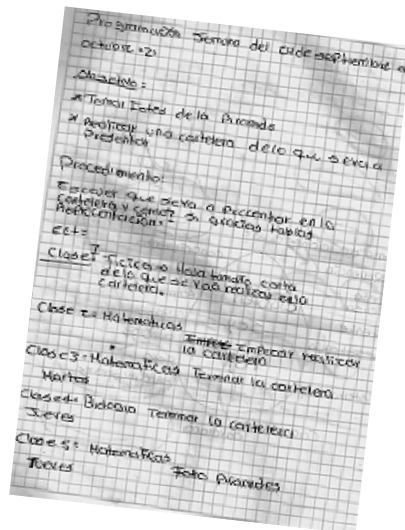 Programación Semana del de septiembre
octubre 2
Objectivo:
* Tomar Fotos de la
* Realizar una cartelera de lo que se va a
Presentar
Procedimiento:
Escover que se va a Preccentar en la
cartelera y como? Si gracias tablas
Reprecentacion.
Clase 1 Ficica Hoja tamaño carta
de lo que se va a realizar en la
cartelera.
Clase 2= Matematicas Empezar realizar
la cartelera
Clase 3= Matematicas Terminar la cartelera
Martes
Clase 4= Biologia Terminar la cartelera
Jueves
Clase 5= Matematicas
Jueves Foto